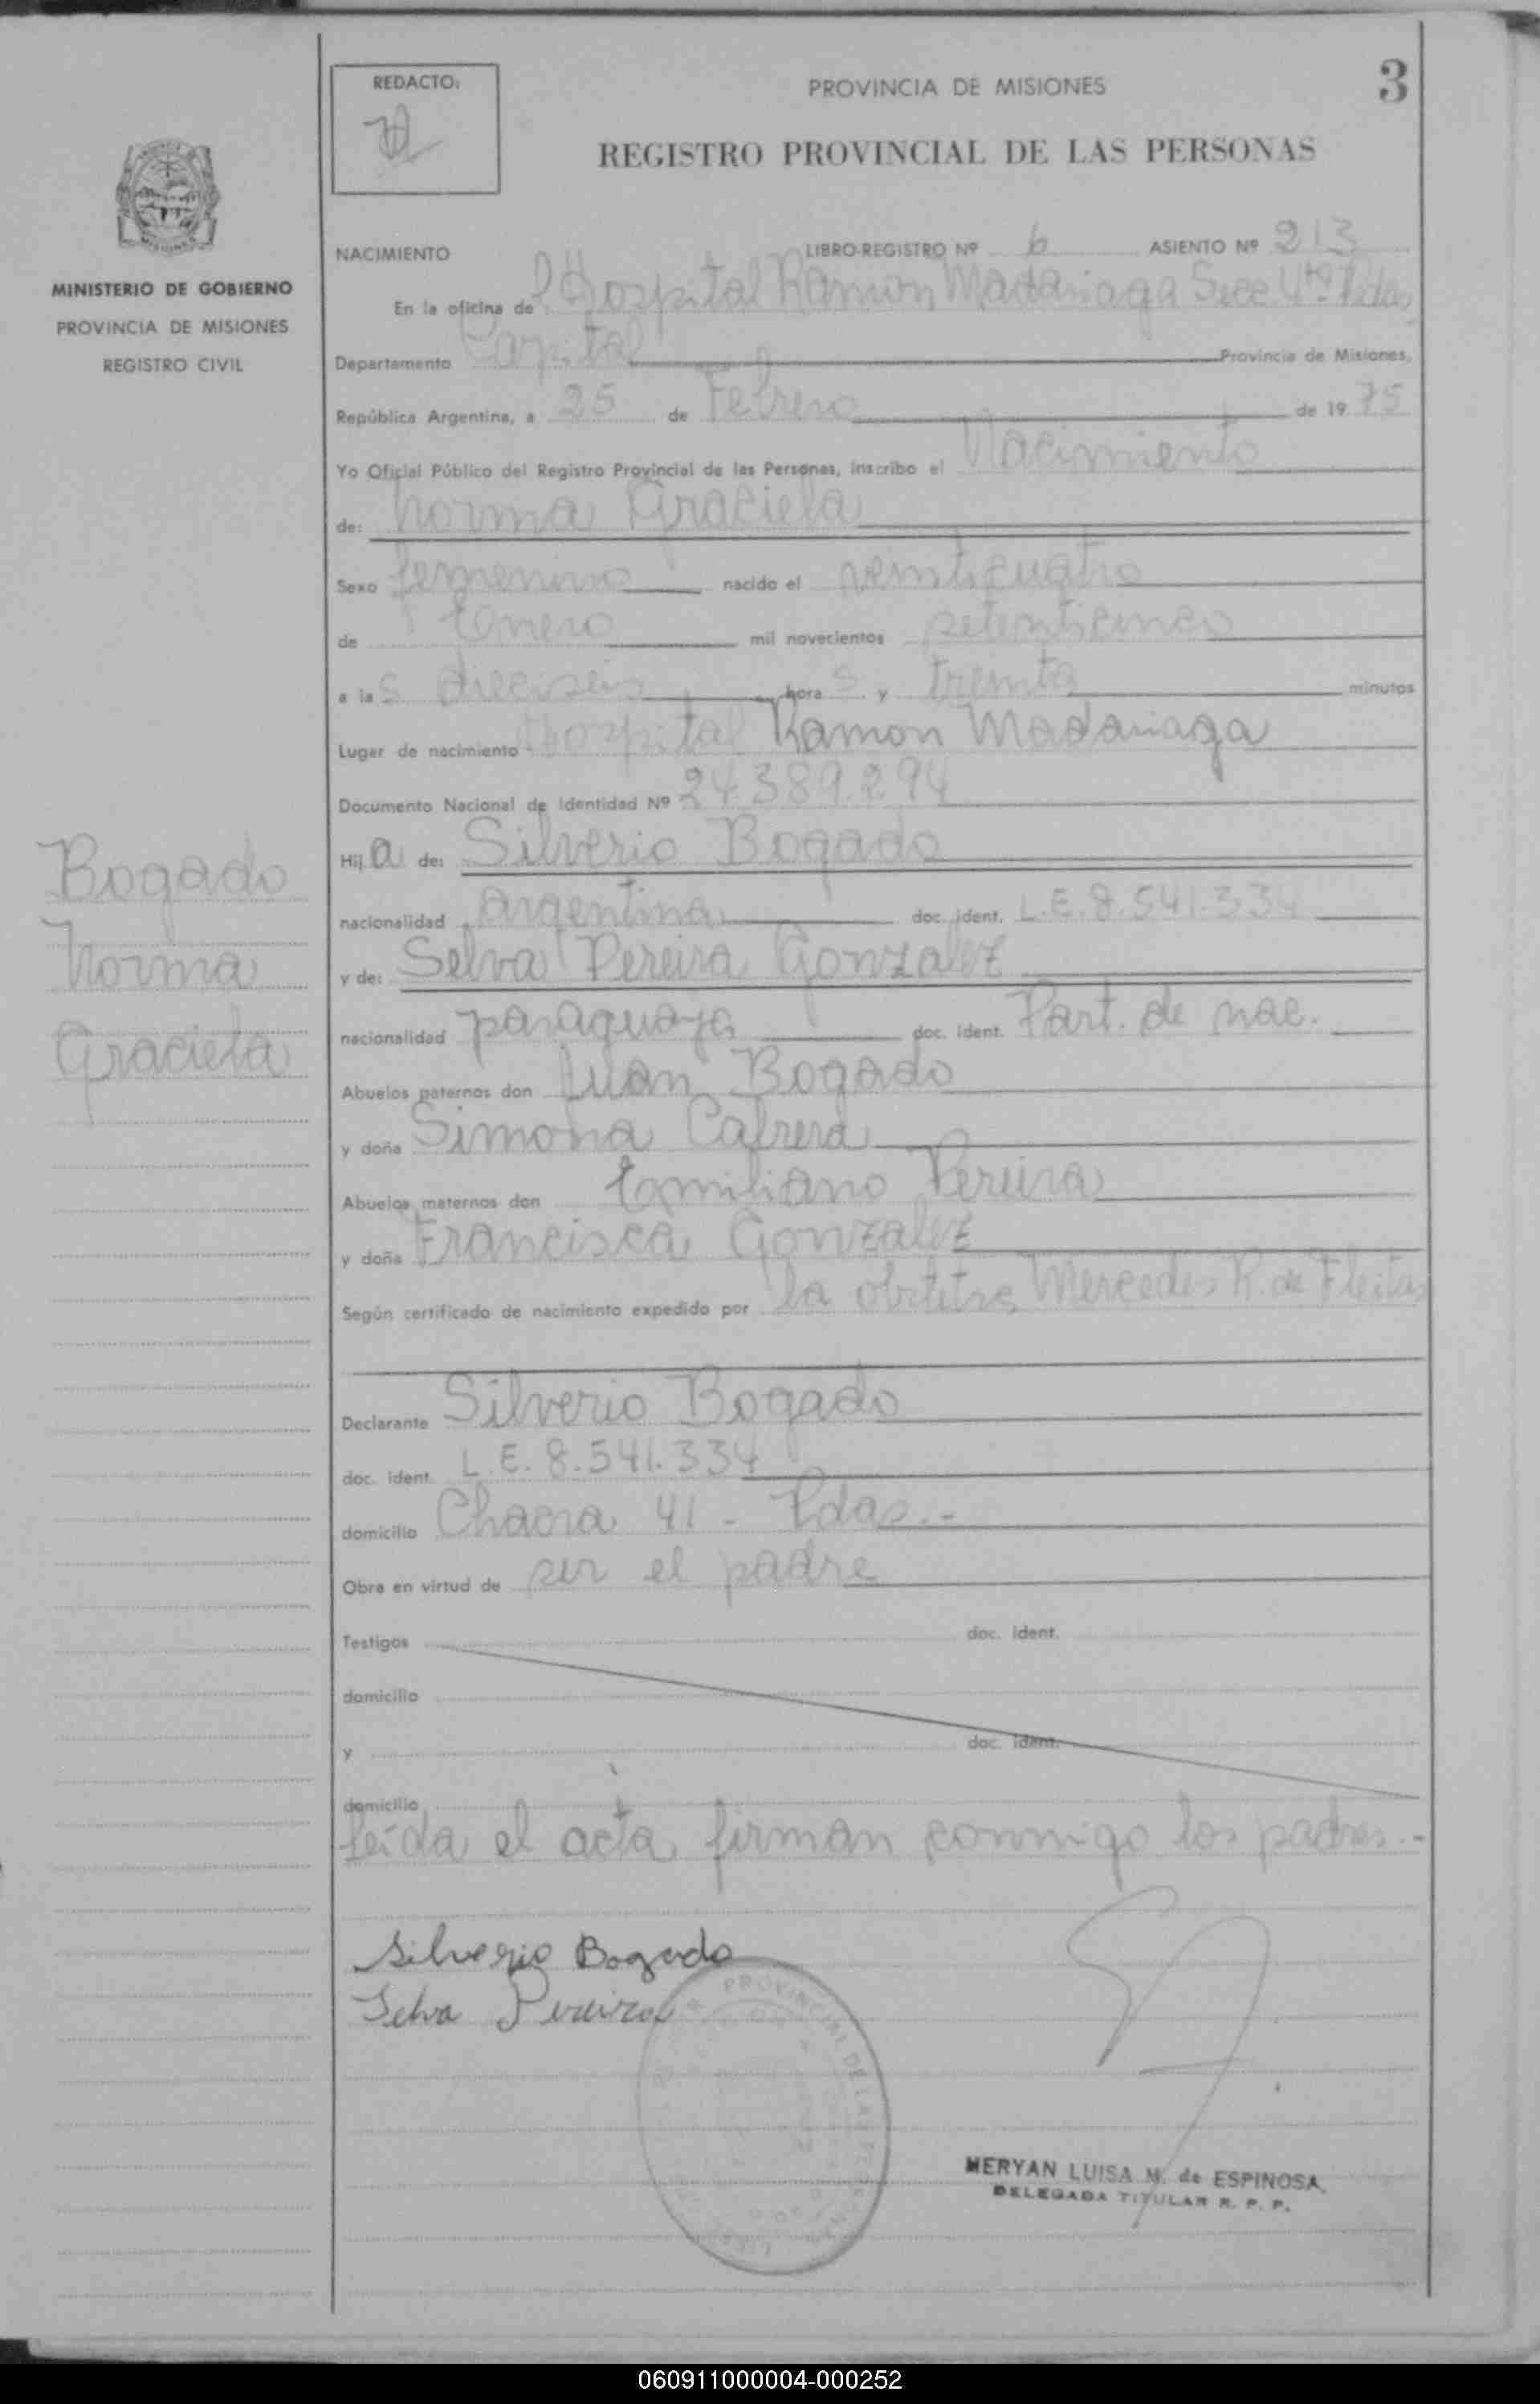 REDACTO:
PROVINCIA DE MISIONES
3
REGISTRO PROVINCIAL DE LAS PERSONAS
MINISTERIO DE GOBIERNO
PROVINCIA DE MISIONES
REGISTRO CIVIL
NACIMIENTO LIBRO-REGISTRO Nº 6 ASIENTO Nº 213
En la oficina de l Hospital Ramon Madariaga Secc 4ta. Pdas
Departamento Capital Provincia de Misiones,
República Argentina, a 25 de Febrero de 19 75
Yo Oficial Público del Registro Provincial de las Personas, inscribo el Nacimiento
de: Norma Graciela
Sexo femenino nacido el veinticuatro
de Enero mil novecientos setenticinco
a las dieciseis hora s y treinta minutos
Lugar de nacimiento Hospital Ramon Madariaga
Documento Nacional de Identidad Nº 24.389.294
Hij a de: Silverio Bogado
nacionalidad argentina doc. ident. L.E. 8.541.334
y de: Selva Pereira Gonzalez
nacionalidad paraguaya doc. ident. Part. de nac.
Abuelos paternos don Juan Bogado
y doña Simona Cabrera
Abuelos maternos don Emiliano Pereira
y doña Francisca Gonzalez
Según certificado de nacimiento expedido por la obstetra Mercedes R. de Fleitas
Declarante Silverio Bogado
doc. ident. L.E. 8.541.334
domicilio Chacra 41 - Pdas.-
Obra en virtud de ser el padre
Testigos doc. ident.
domicilio
y doc. ident.
domicilio
Leída el acta, firman conmigo los padres.-
Bogado
Norma
Graciela
Silverio Bogado
Selva Pereira
PROVINCIAL DE LAS PERSONAS
MERYAN LUISA M. de ESPINOSA
DELEGADA TITULAR R. P. P.
060911000004-000252